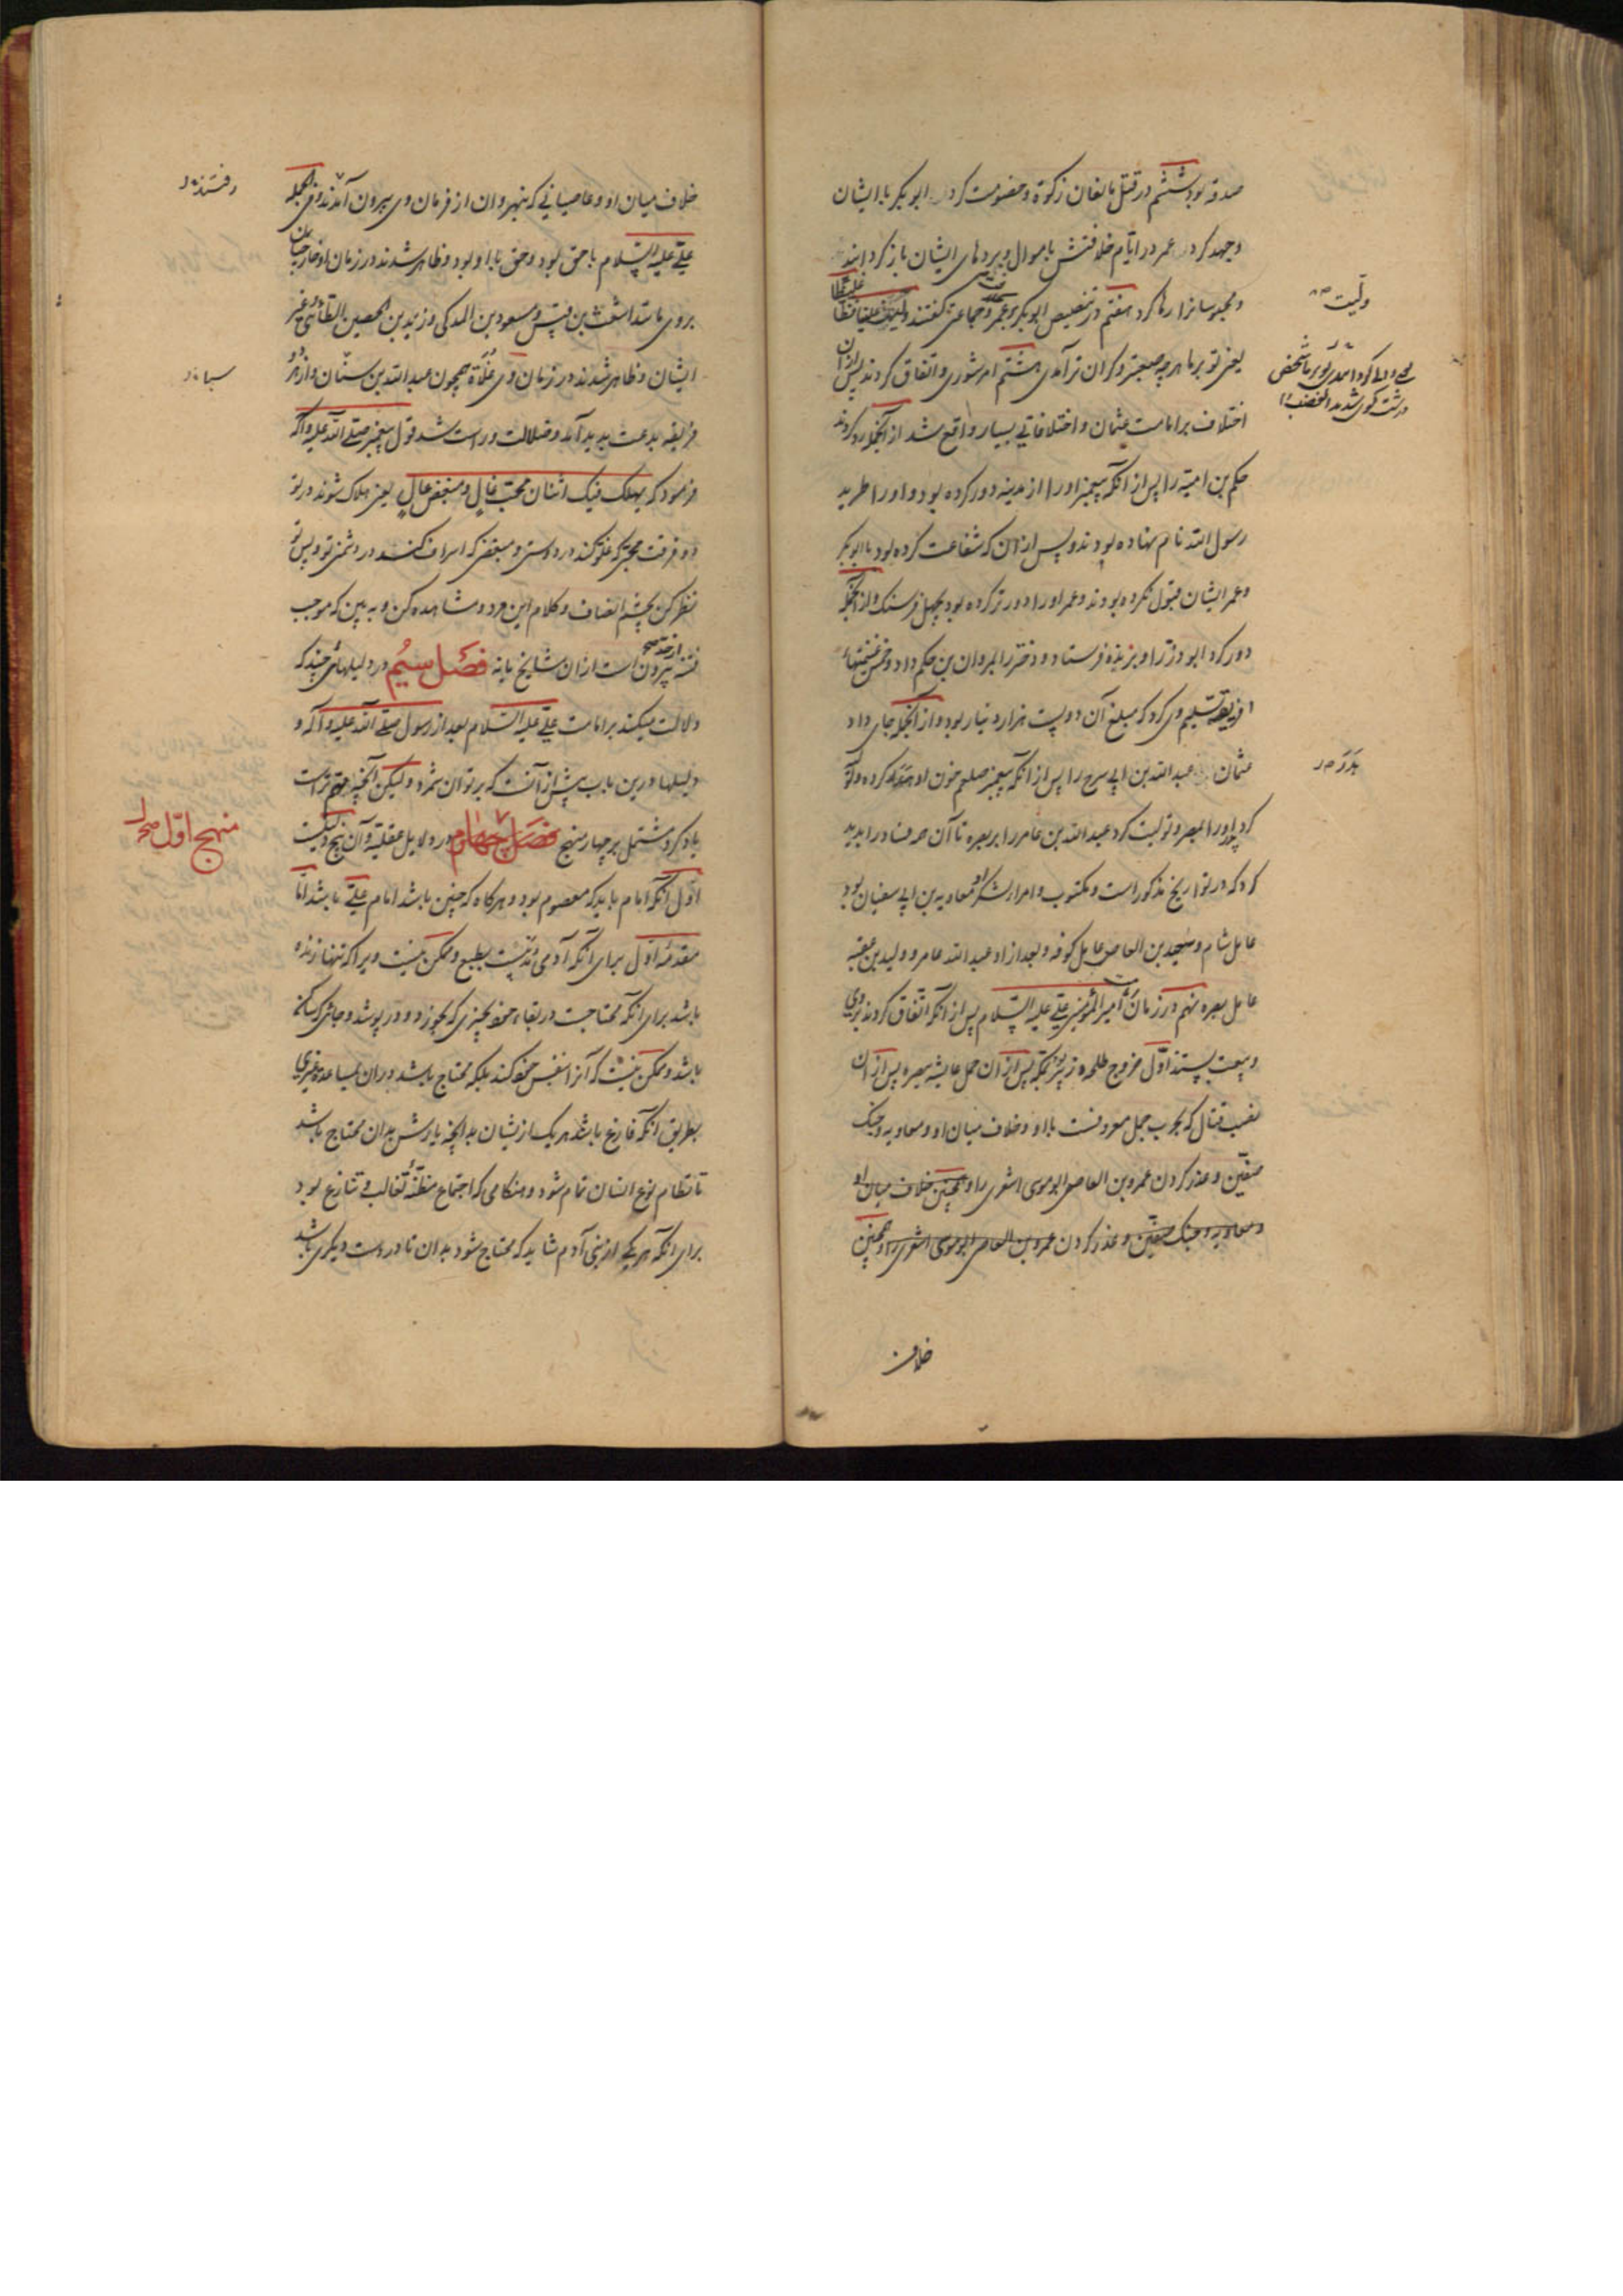 صدقه بود ششم در قتل مانعان زکوة و خصومت کرد ابو بکر با ایشان
و جهد کرد عمر در ایام خلافتش باموال و بردهای ایشان باز گردانید
و محبوسانرا رها کرد هفتم در تنصیص ابو بکر بر عمر و جماعتی گفتند ولیت علینا فظا غلیظا
یعنی تو بر ما هر چه صعبتر و گران تر آمدی هشتم امر شوری و اتفاق کردند پس از ان
اختلاف بر امامت عثمان و اختلافاتی بسیار واقع شد از آنجمله رد کردند
حکم بن امیة را پس از آنکه پیغمبر اورا از مدینه دور کرده بود و اورا طرید
رسول الله نام نهاده بودند و پس از ان که شفاعت کرده بود با ابو بکر
و عمر ایشان قبول نکرده بودند و عمر اورا دور تر کرده بود بچهل فرسنک و از آنجمله
دور کرد ابو ذر را و بربذه فرستاد و دختر را بمروان بن حکم داد و خمس غنیمتهاء
افریقه تسلیم وی کرد که مبلغ آن دویست هزار دینار بود و از آنجمله جای داد
عثمان عبد الله بن ابی سرح را پس از آنکه پیغمبر صلعم خون او هدر کرده و تو
کرد اورا بمصر و تولیت کرد عبد الله بن عامر را بر بصره تا آن همه فساد را پدید
کرد که در تواریخ مذکور است و مکتوب و امراء لشکر او معاویه بن ابی سفیان بود
عامل شام و سعید بن العاص عامل کوفه و بعد از او عبد الله عامر و ولید بن عقبه
عامل بصره نهم در زمان امیر المؤمنین علی علیه السلام پس از آنکه اتفاق کردند بر وی
و بیعت بستند اول خروج طلحه و زبیر بمکه پس از ان حمل عایشه ببصره پس از ان
نصب قتال که بحرب جمل معروفست با او و خلاف میان او و معاویه و جنک
صفین و غدر کردن عمرو بن العاص ابو موسی اشعری را و همچنین خلاف میان او
و معاویه و جنک صفین و غدر کردن عمرو بن العاص ابو موسی اشعری را و همچنین
خلاف
ولیت صح
بدر صح
خلاف میان او و عاصیانی که بنهروان از فرمان وی بیرون آمدند و فی الجمله
علی علیه السلام با حق بود و حق با او بود و ظاهر شدند در زمان او خارجیان
بر وی مانند اشعث بن قیس و مسعود بن المدکی و زید بن الحصین الطائی و غیر
ایشان و ظاهر شدند در زمان وی غلاة همچون عبد الله بن سنان و از هر دو
فریقه بدعت پدید آمد و ضلالت و راست شد قول پیغمبر صلی الله علیه و آله
فرمود که یهلک فیک اثنان محب غال و مبغض غال یعنی هلاک شوند در تو
دو فرقت محبی که غلو کند در دوستی و مبغض که اسراف کند در دشمنی تو و پس تو
نظر کن بچشم انصاف و کلام این مرد و مشاهده کن و به بین که موجب
فتنه بیرون است از ان مشایخ یا نه فصل سیم در دلیلهائی چند که
دلالت میکند بر امامت علی علیه السلام بعد از رسول صلی الله علیه و آله و
دلیلها درین باب بیش از آنست که بر توان شمرد و لیکن آنچه مهم تر است
یاد کرد مشتمل بر چهار منهج فصل چهارم در دلایل عقلیة و آن پنج دلیلست
اول آنکه امام باید که معصوم بود و هرگاه که چنین باشد امام علی باشد اما
مقدمه اول برای آنکه آدمی مدنیست بطبع و ممکن نیست ویرا که تنها زنده
باشد برای آنکه محتاجست در بقاء خود بچیزی که بخورد و در پوشد و جائی که ساکن
باشد و ممکن نیست که آنرا بنفس خود کند بلکه محتاج باشد در ان بمساعده غیری
بطریق آنکه فارغ باشد هر یک از یشان بدانچه یارش بدان محتاج باشد
تا نظام نوع انسان تمام شود و هنگامی که اجتماع مظنه تغالب و تنازع بود
برای آنکه هر یکی از بنی آدم شاید که محتاج شود بدان تا در دست دیگری باشد
رفتند
سبا
منهج اول صح